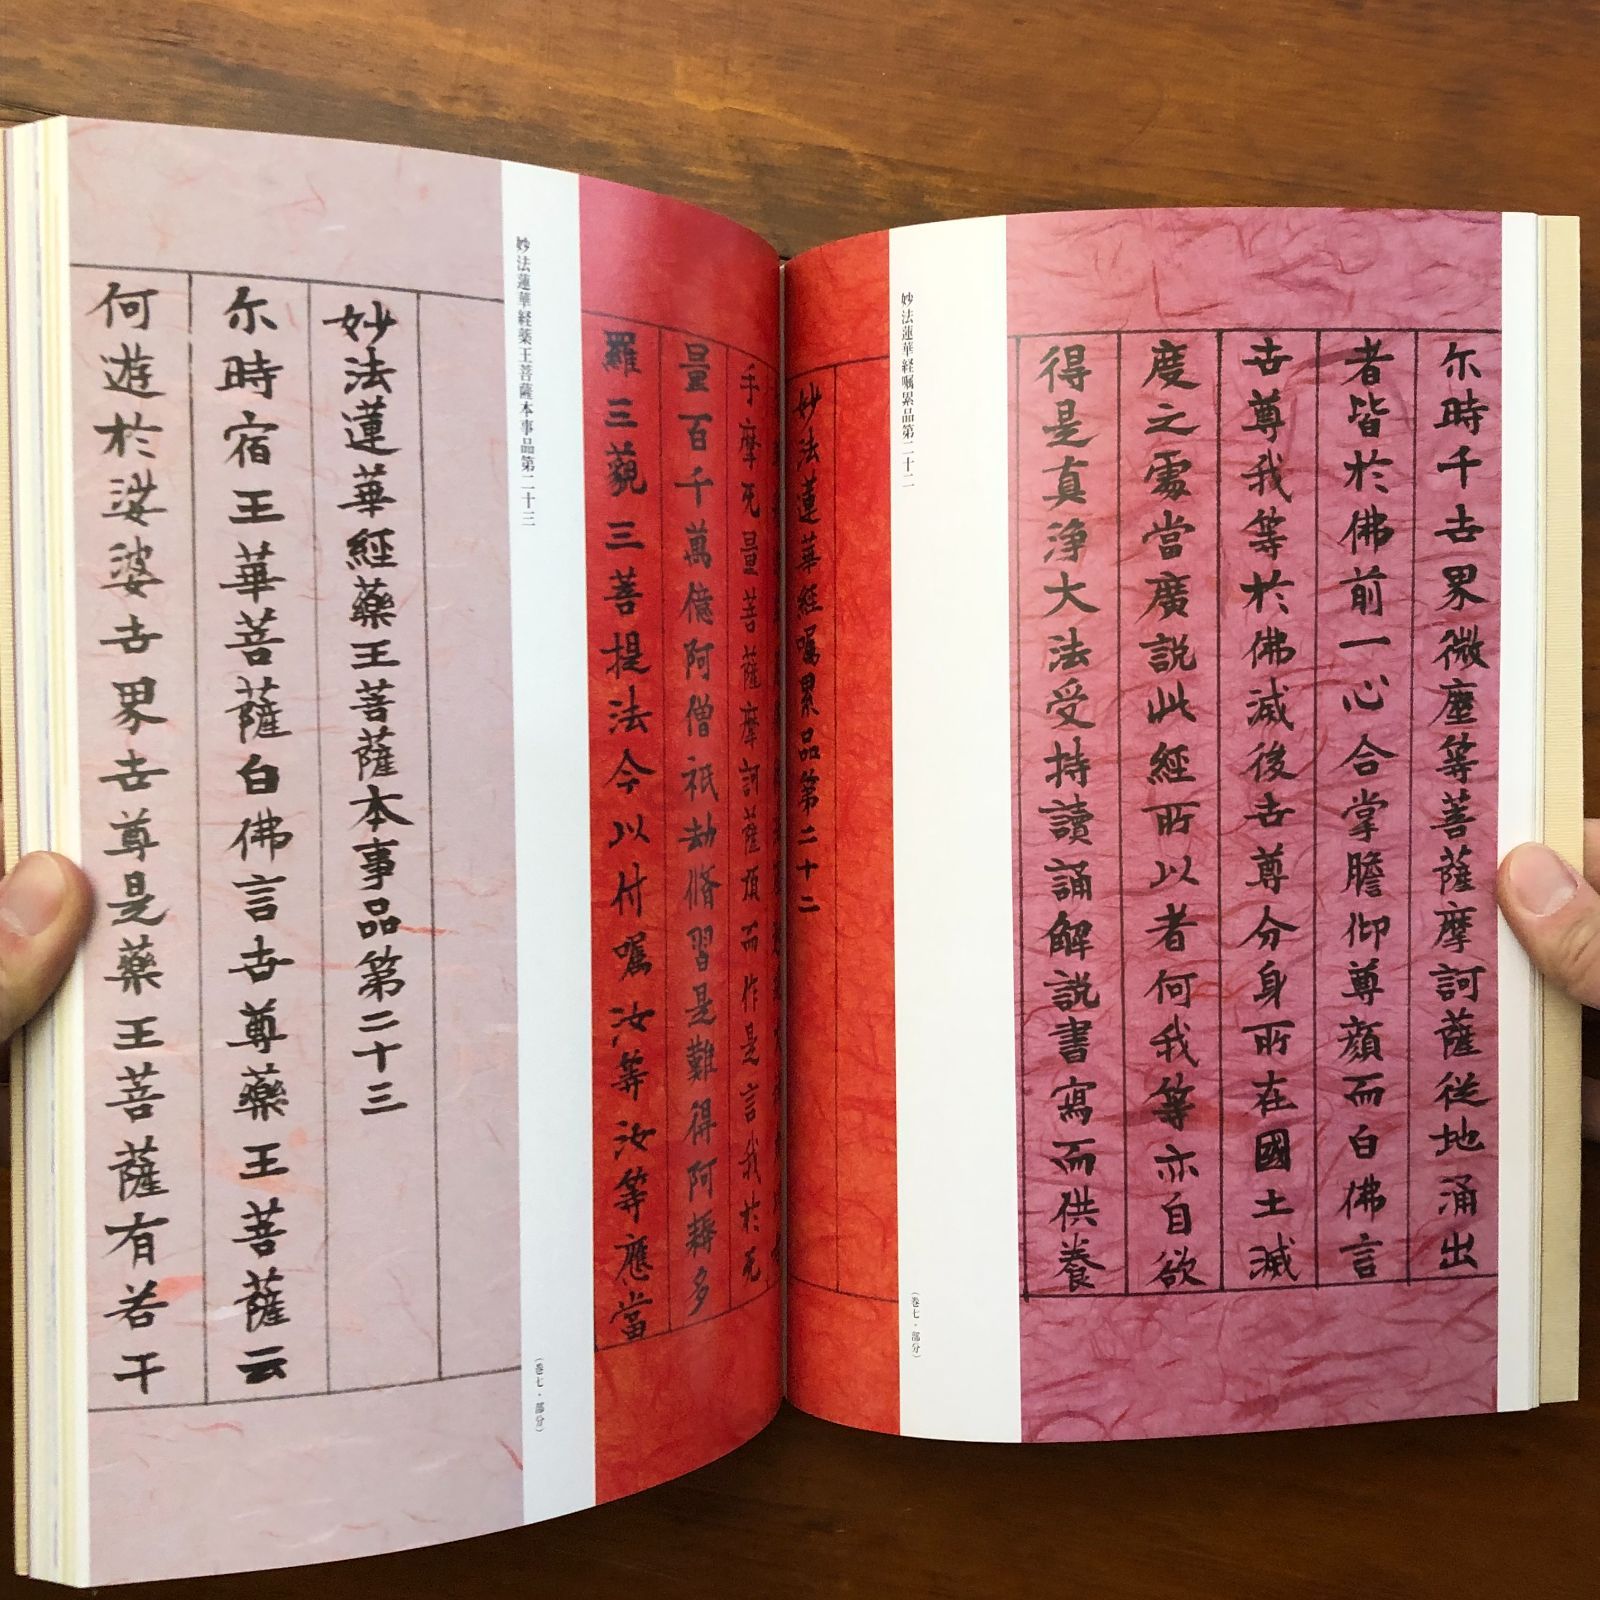 尓時千世界微塵等菩薩摩訶薩從地涌出
者皆於佛前一心合掌瞻仰尊顔而白佛言
世尊我等於佛滅後世尊分身所在國土滅
度之處當廣説此經所以者何我等亦自欲
得是真淨大法受持讀誦解説書寫而供養
妙法蓮華経嘱累品第二十二
（巻七・部分）
妙法蓮華經囑累品第二十二
手摩无量菩薩摩訶薩頂而作是言我於无
量百千萬億阿僧祇劫脩習是難得阿耨多
羅三藐三菩提法今以付囑汝等汝等應當
妙法蓮華経薬王菩薩本事品第二十三
（巻七・部分）
妙法蓮華經藥王菩薩本事品第二十三
尓時宿王華菩薩白佛言世尊藥王菩薩云
何遊於娑婆世界世尊是藥王菩薩有若干